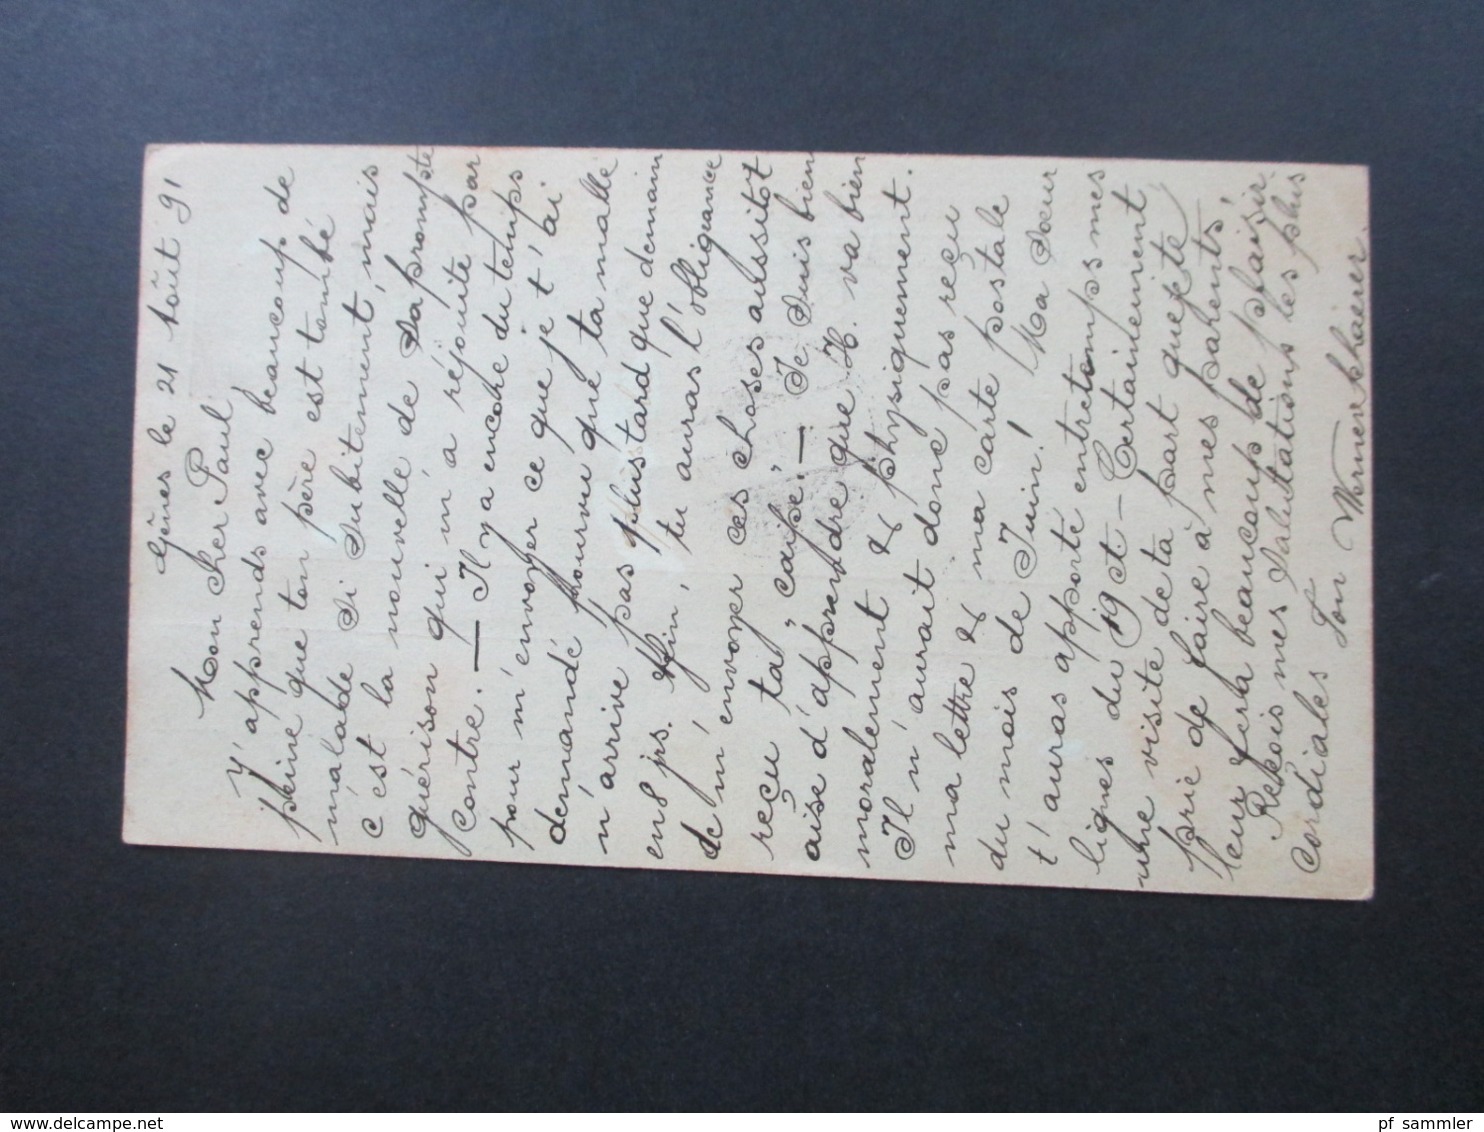 Gênes le 21 Août 91
Mon cher Paul.
J'apprends avec beaucoup de
peine que ton père est tombé
malade si subitement, mais
c'est la nouvelle de sa prompte
guérison qui m'a réjouite par
contre. — Il y a encore du temps
pour m'envoyer ce que je t'ai
demandé pourvu que ta malle
n'arrive pas plus tard que demain
en 8 jrs. Afin, tu auras l'obligeance
de m'envoyer ces choses aussitôt
reçu ta „caisse". — Je suis bien
aise d'apprendre que H. va bien
moralement & physiquement.
Il n'aurait donc pas reçu
ma lettre & ma carte postale
du mois de Juin! Ma soeur
t'auras apporté entretemps mes
lignes du 19 ct — Certainement
une visite de ta part que je te
prie de faire à mes parents,
leur fera beaucoup de plaisir.
Reçois mes salutations les plus
cordiales Ton
pf sammler
delcampe.net